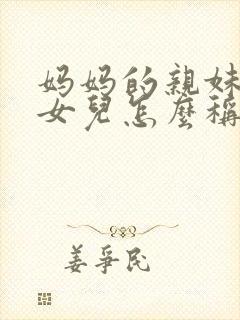 妈妈的親妹
女兒怎麼稱
姜爭民